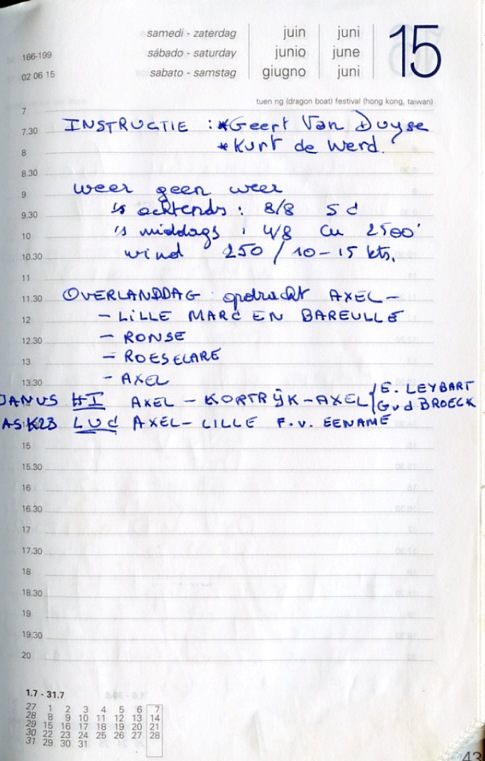 samedi - zaterdag juin juni 15
166-199 sábado - saturday junio june
02 06 15 sabato - samstag giugno juni
tuen ng (dragon boat) festival (hong kong, taiwan)
7
7.30 INSTRUCTIE : *Geert Van Duyse
8 *Kurt de Werd.
8.30
9 weer geen weer
9.30 's ochtends : 8/8 Sc
10 's middags : 4/8 Cu 2500'
10.30 wind 250 / 10-15 kts.
11
11.30 OVERLANDDAG opdracht AXEL -
12 - LILLE MARC EN BAREULLE
12.30 - RONSE
13 - ROESELARE
13.30 - AXEL
JANUS HI AXEL - KORTRIJK - AXEL { E. LEYBART
G v d BROECK
ASK23 LUd AXEL - LILLE F. v. EENAME
15
15.30
16
16.30
17
17.30
18
18.30
19
19.30
20
1.7 - 31.7
27 1 2 3 4 5 6 7
28 8 9 10 11 12 13 14
29 15 16 17 18 19 20 21
30 22 23 24 25 26 27 28
31 29 30 31
43